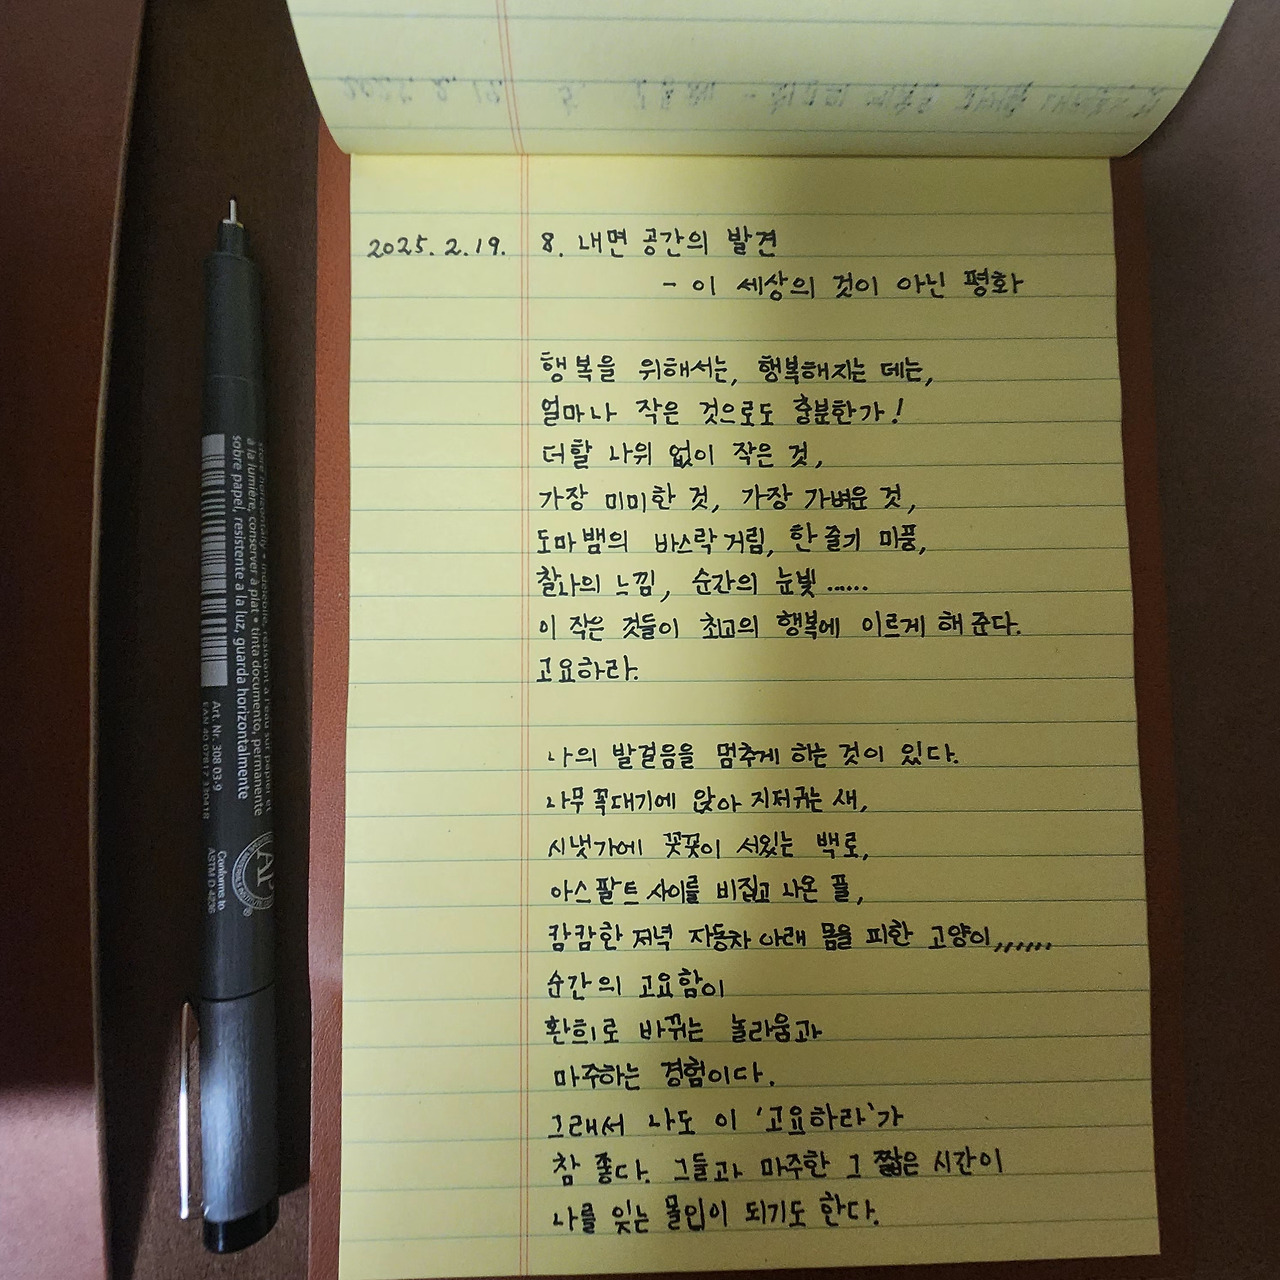 2025. 2. 19. 8. 내면 공간의 발견
- 이 세상의 것이 아닌 평화
행복을 위해서는, 행복해지는 데는,
얼마나 작은 것으로도 충분한가!
더할 나위 없이 작은 것,
가장 미미한 것, 가장 가벼운 것,
도마뱀의 바스락거림, 한 줄기 미풍,
찰나의 느낌, 순간의 눈빛......
이 작은 것들이 최고의 행복에 이르게 해 준다.
고요하라.
나의 발걸음을 멈추게 하는 것이 있다.
나무 꼭대기에 앉아 지저귀는 새,
시냇가에 꼿꼿이 서있는 백로,
아스팔트 사이를 비집고 나온 풀,
캄캄한 저녁 자동차 아래 몸을 피한 고양이,,,,,,
순간의 고요함이
환희로 바뀌는 놀라움과
마주하는 경험이다.
그래서 나도 이 '고요하라'가
참 좋다. 그들과 마주한 그 짧은 시간이
나를 잊는 몰입이 되기도 한다.
store horizontally • indelible, résistant à l'eau sur papier et
à la lumière, conserver à plat • tinta documento, permanente
sobre papel, resistente a la luz, guarda horizontalmente
Art. Nr. 308 03-9
EAN 40 07817 330418
AP
Conforms to
ASTM D-4236